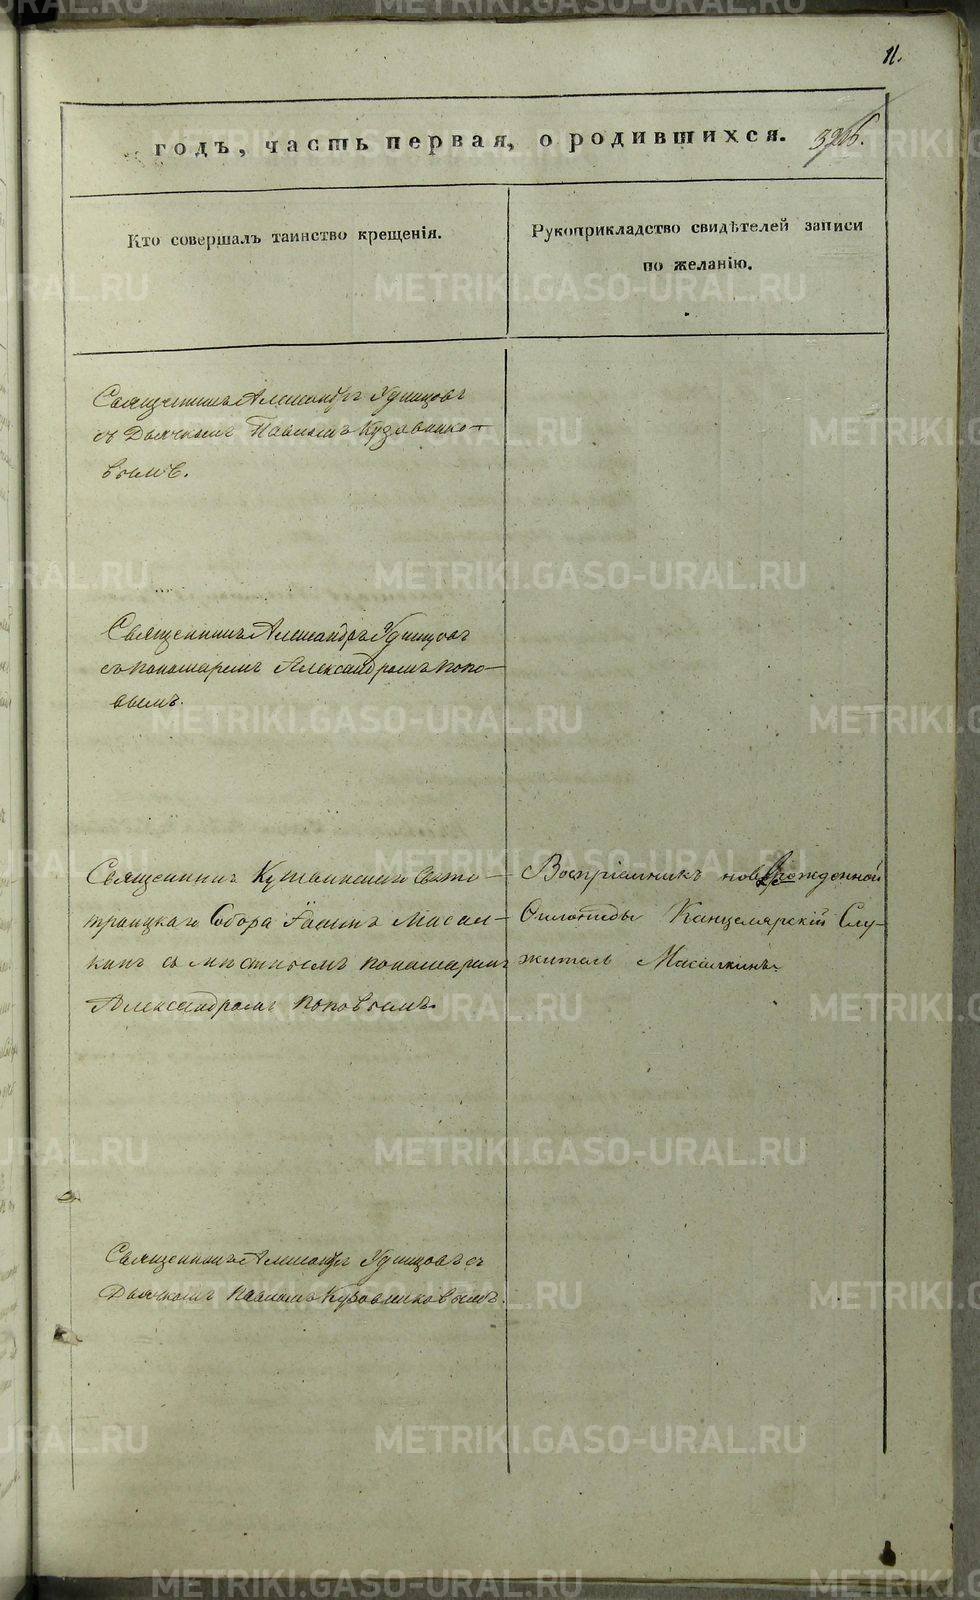 11.
годъ, часть первая, о родившихся. 326.
Кто совершалъ таинство крещенія.
Рукоприкладство свидѣтелей записи
по желанію.
Священникъ Александръ Удинцовъ
съ Дьячкомъ Павломъ Кузовнико-
вымъ.
Священникъ Александръ Удинцовъ
съ пономаремъ Александромъ Попо-
вымъ.
Священникъ Свято-
троицкаго Собора Масал-
кинъ съ мѣстнымъ пономаремъ
Александромъ Поповымъ.
Воспріемникъ новорожденной
Канцелярскій Слу-
житель Масалкинъ
Священникъ Александръ Удинцовъ съ
Дьячкомъ Павломъ Кузовниковымъ.
METRIKI.GASO-URAL.RU